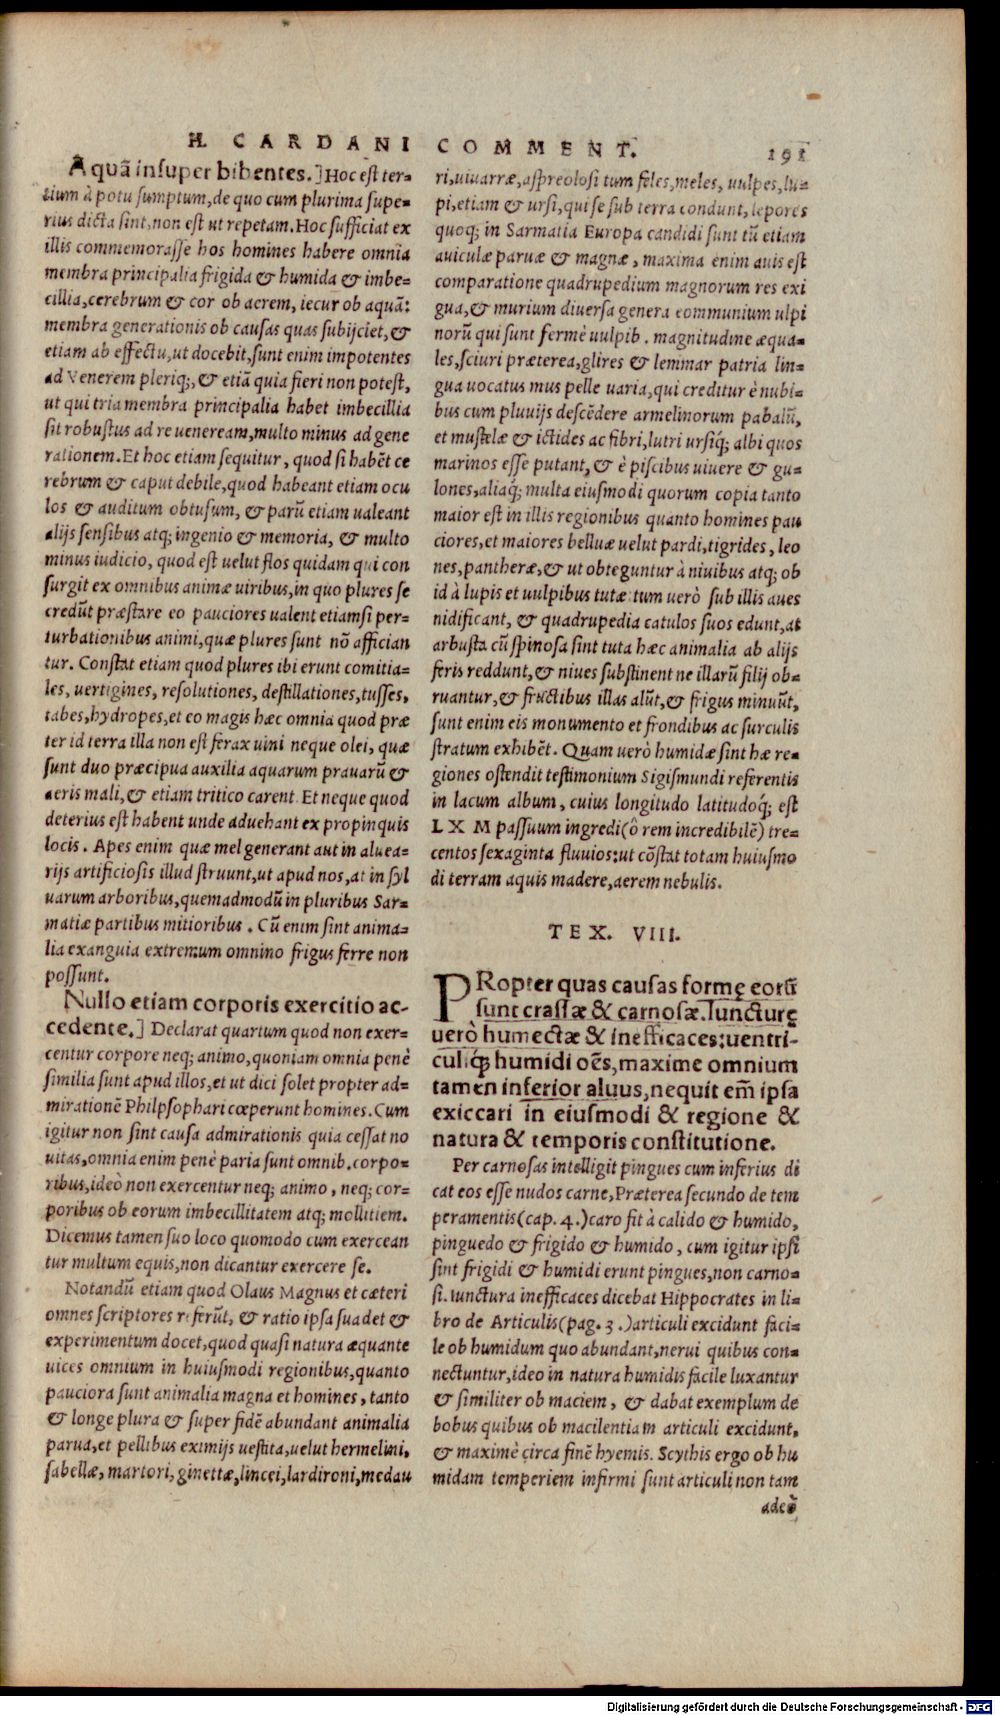 H. CARDANI COMMENT. 191
Aquã insuper bibentes.] Hoc est ter-
tium à potu sumptum, de quo cum plurima supe-
rius dicta sint, non est ut repetam. Hoc sufficiat ex
illis commemorasse hos homines habere omnia
membra principalia frigida & humida & imbe-
cillia, cerebrum & cor ob aerem, iecur ob aquã:
membra generationis ob causas quas subijciet, &
etiam ab effectu, ut docebit, sunt enim impotentes
ad Venerem pleriq;, & etiã quia fieri non potest,
ut qui tria membra principalia habet imbecillia
sit robustus ad re veneream, multo minus ad gene
rationem. Et hoc etiam sequitur, quod si habẽt ce
rebrum & caput debile, quod habeant etiam ocu
los & auditum obtusum, & parũ etiam ualeant
alijs sensibus atq; ingenio & memoria, & multo
minus iudicio, quod est uelut flos quidam qui con
surgit ex omnibus animæ uiribus, in quo plures se
credũt præstare eo pauciores ualent etiamsi per-
turbationibus animi, quæ plures sunt nõ affician
tur. Constat etiam quod plures ibi erunt comitia-
les, uertigines, resolutiones, destillationes, tusses,
tabes, hydropes, et eo magis hæc omnia quod præ
ter id terra illa non est ferax uini neque olei, quæ
sunt duo præcipua auxilia aquarum prauarũ &
aeris mali, & etiam tritico carent. Et neque quod
deterius est habent unde aduehant ex propinquis
locis. Apes enim quæ mel generant aut in aluea-
rijs artificiosis illud struunt, ut apud nos, at in syl
uarum arboribus, quemadmodũ in pluribus Sar-
matiæ partibus mitioribus. Cũ enim sint anima-
lia exanguia extremum omnino frigus ferre non
possunt.
Nullo etiam corporis exercitio ac-
cedente.] Declarat quartum quod non exer-
centur corpore neq; animo, quoniam omnia penè
similia sunt apud illos, et ut dici solet propter ad-
mirationẽ Philpsophari cœperunt homines. Cum
igitur non sint causa admirationis quia cessat no
uitas, omnia enim penè paria sunt omnib. corpo-
ribus, ideò non exercentur neq; animo, neq; cor-
poribus ob eorum imbecillitatem atq; mollitiem.
Dicemus tamen suo loco quomodo cum exercean
tur multum equis, non dicantur exercere se.
Notandũ etiam quod Olaus Magnus et cæteri
omnes scriptores referũt, & ratio ipsa suadet &
experimentum docet, quod quasi natura æquante
uices omnium in huiusmodi regionibus, quanto
pauciora sunt animalia magna et homines, tanto
& longe plura & super fidẽ abundant animalia
parua, et pellibus eximijs uestita, uelut hermelini,
sabellæ, martori, ginettæ, lincei, lardironi, medau
ri, uiuarræ, aspreolosi tum feles, meles, uulpes, lu-
pi, etiam & ursi, qui se sub terra condunt, lepores
quoq; in Sarmatia Europa candidi sunt tũ etiam
auiculæ paruæ & magnæ, maxima enim auis est
comparatione quadrupedium magnorum res exi
gua, & murium diuersa genera communium ulpi
norũ qui sunt fermè uulpib. magnitudine æqua-
les, sciuri præterea, glires & lemmar patria lin-
gua uocatus mus pelle uaria, qui creditur è nubi-
bus cum pluuijs descẽdere armelinorum pabalũ,
et mustelæ & ictides ac fibri, lutri ursiq́; albi quos
marinos esse putant, & è piscibus uiuere & gu-
lones, aliaq́; multa eiusmodi quorum copia tanto
maior est in illis regionibus quanto homines pau
ciores, et maiores belluæ uelut pardi, tigrides, leo
nes, pantheræ, & ut obteguntur à niuibus atq; ob
id à lupis et uulpibus tutæ: tum uerò sub illis aues
nidificant, & quadrupedia catulos suos edunt, at
arbusta cũ spinosa sint tuta hæc animalia ab alijs
feris reddunt, & niues substinent ne illarũ filij ob-
ruantur, & fructibus illas alũt, & frigus minuũt,
sunt enim eis monumento et frondibus ac surculis
stratum exhibẽt. Quam uerò humidæ sint hæ re-
giones ostendit testimonium Sigismundi referentis
in lacum album, cuius longitudo latitudoq́; est
LX M passuum ingredi (ô rem incredibilẽ) tre-
centos sexaginta fluuios: ut cõstat totam huiusmo
di terram aquis madere, aerem nebulis.
TEX. VIII.
PRopter quas causas formę eorũ
sunt crassæ & carnosæ. Iuncturę
uerò humectæ & inefficaces: uentri-
culiq́; humidi oẽs, maxime omnium
tamen inferior aluus, nequit em̃ ipsa
exiccari in eiusmodi & regione &
natura & temporis constitutione.
Per carnosas intelligit pingues cum inferius di
cat eos esse nudos carne, Præterea secundo de tem
peramentis (cap. 4.) caro fit à calido & humido,
pinguedo & frigido & humido, cum igitur ipsi
sint frigidi & humidi erunt pingues, non carno-
si. Iunctura inefficaces dicebat Hippocrates in li-
bro de Articulis (pag. 3.) articuli excidunt faci-
le ob humidum quo abundant, nerui quibus con-
nectuntur, ideo in natura humidis facile luxantur
& similiter ob maciem, & dabat exemplum de
bobus quibus ob macilentiam articuli excidunt,
& maximè circa finẽ hyemis. Scythis ergo ob hu
midam temperiem infirmi sunt articuli non tam
adeò
Digitalisierung gefördert durch die Deutsche Forschungsgemeinschaft - DFG